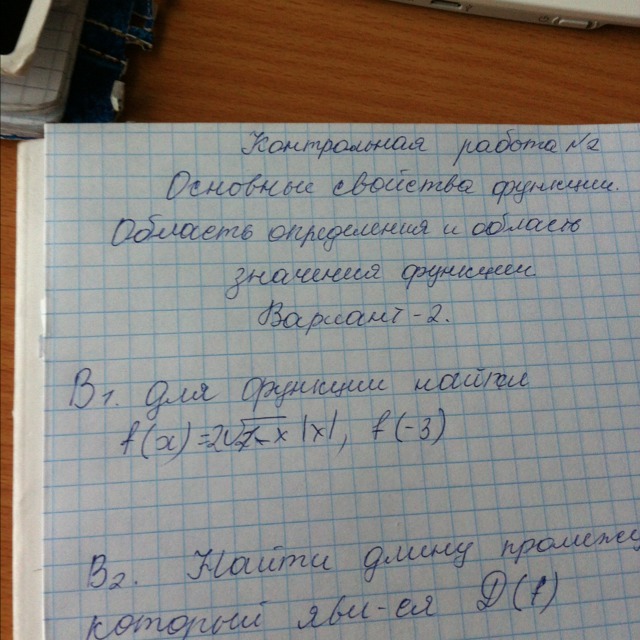 Контрольная работа №2
Основные свойства функции.
Область определения и область
значения функции
Вариант-2.
В1. Для функции найти
f(x)=2√ x |x|, f(-3)
В2. Найти длину
который яви-ся D(f)